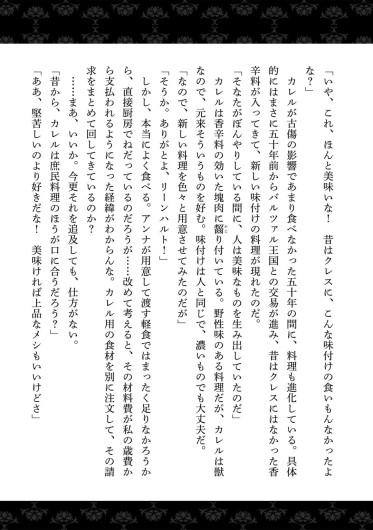 「いや、これ、ほんと美味いな！　昔はクレスに、こんな味付けの食いもんなかったよ
な？」
　カレルが古傷の影響であまり食べなかった五十年の間に、料理も進化している。具体
的にはまさに五十年前からバルツァル王国との交易が進み、昔はクレスにはなかった香
辛料が入ってきて、新しい味付けの料理が現れたのだ。
「そなたがぼんやりしている間に、人は美味なものを生み出していたのだ」
　カレルは香辛料の効いた塊肉に齧り付いている。野性味のある料理だが、カレルは獣
なので、元来そういうものを好む。味付けは人と同じで、濃いものでも大丈夫だ。
「なので、新しい料理を色々と用意させてみたのだが」
「そうか。ありがとよ、リーンハルト！」
　しかし、本当によく食べる。アンナが用意して渡す軽食ではまったく足りなかろうか
ら、直接厨房でねだっているのだろうが……改めて考えると、その材料費が私の歳費か
ら支払われるようになった経緯がわからんな。カレル用の食材を別に注文して、その請
求をまとめて回してきているのか？
　……まあ、いいか。今更それを追及しても、仕方がない。
「昔から、カレルは庶民料理のほうが口に合うだろう？」
「ああ、堅苦しいのより好きだな！　美味ければ上品なメシもいいけどさ」